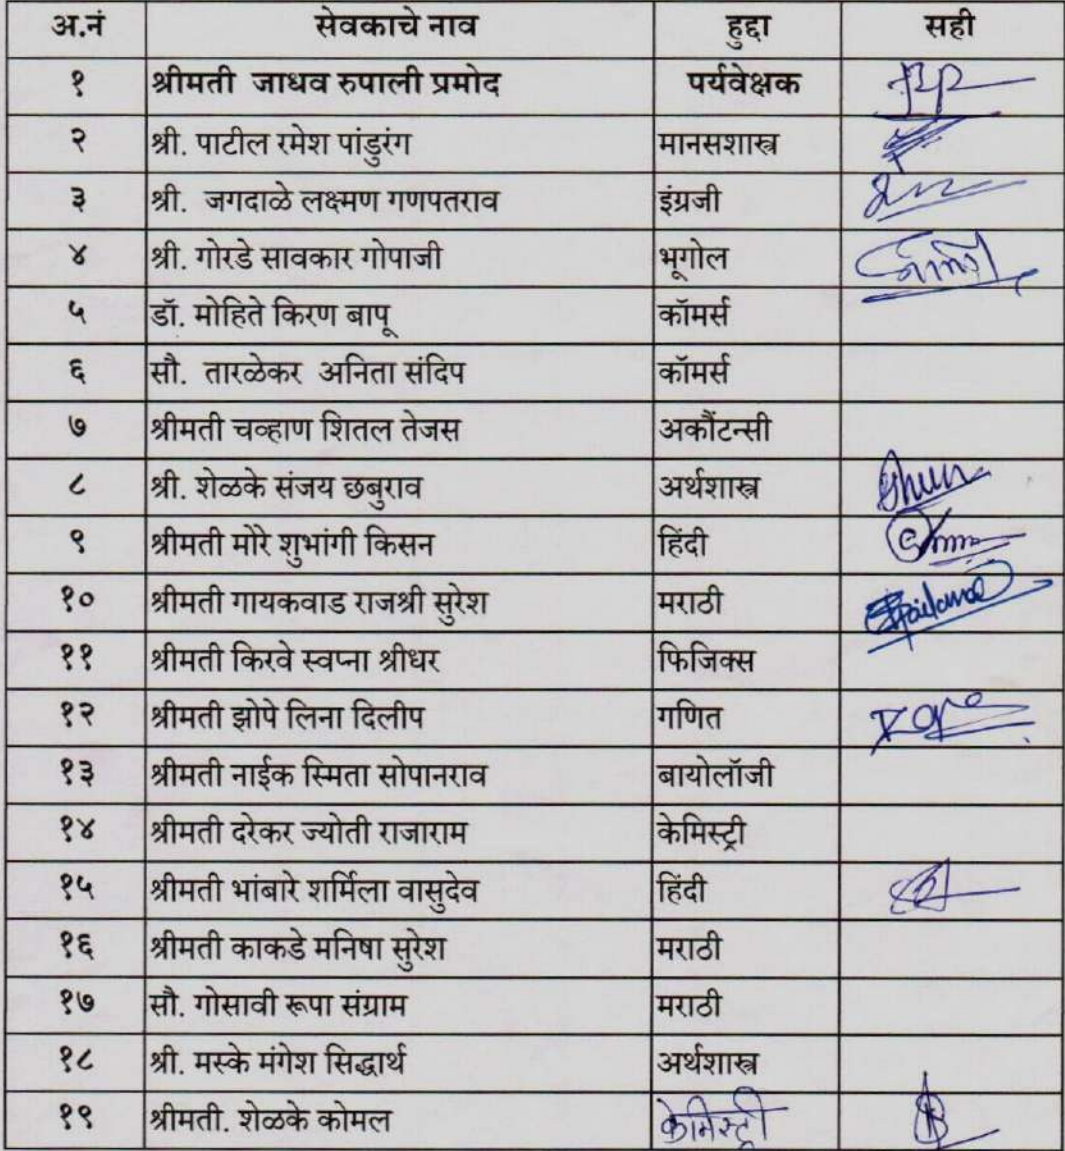 अ.नं सेवकाचे नाव हुद्दा सही
१ श्रीमती जाधव रुपाली प्रमोद पर्यवेक्षक
२ श्री. पाटील रमेश पांडुरंग मानसशास्त्र
३ श्री. जगदाळे लक्ष्मण गणपतराव इंग्रजी
४ श्री. गोरडे सावकार गोपाजी भूगोल
५ डॉ. मोहिते किरण बापू कॉमर्स
६ सौ. तारळेकर अनिता संदिप कॉमर्स
७ श्रीमती चव्हाण शितल तेजस अकौंटन्सी
८ श्री. शेळके संजय छबुराव अर्थशास्त्र
९ श्रीमती मोरे शुभांगी किसन हिंदी
१० श्रीमती गायकवाड राजश्री सुरेश मराठी
११ श्रीमती किरवे स्वप्ना श्रीधर फिजिक्स
१२ श्रीमती झोपे लिना दिलीप गणित
१३ श्रीमती नाईक स्मिता सोपानराव बायोलॉजी
१४ श्रीमती दरेकर ज्योती राजाराम केमिस्ट्री
१५ श्रीमती भांबारे शर्मिला वासुदेव हिंदी
१६ श्रीमती काकडे मनिषा सुरेश मराठी
१७ सौ. गोसावी रूपा संग्राम मराठी
१८ श्री. मस्के मंगेश सिद्धार्थ अर्थशास्त्र
१९ श्रीमती. शेळके कोमल केमिस्ट्री